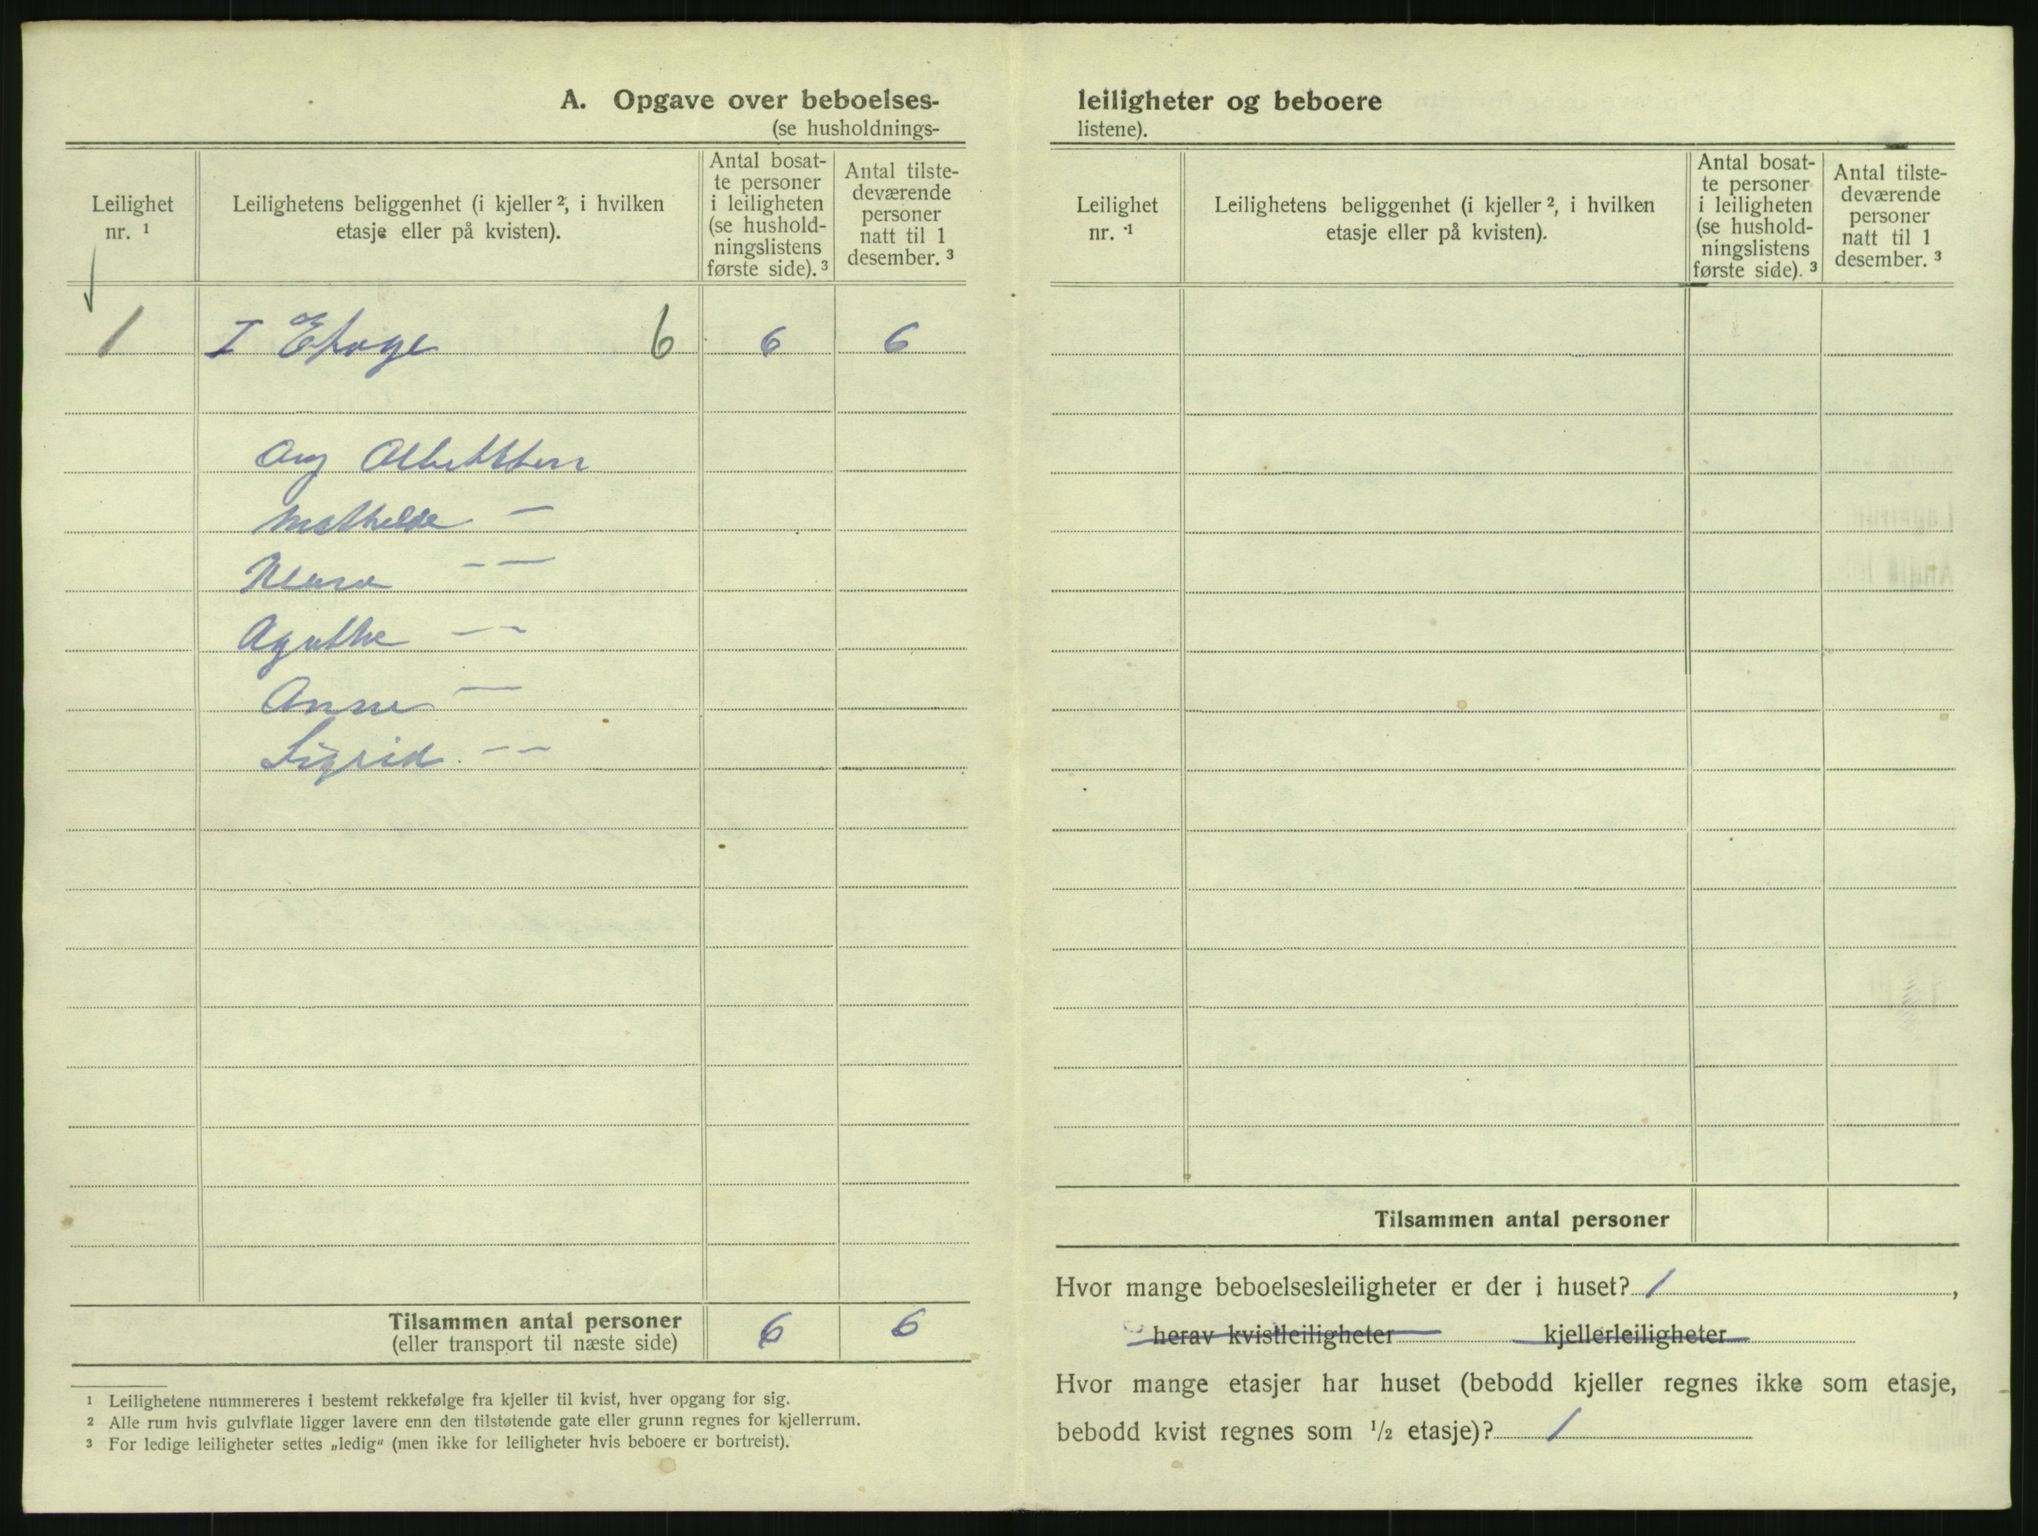 A. Opgave over beboelses-
(se husholdnings-
Leilighet
nr. ¹
Leilighetens beliggenhet (i kjeller ², i hvilken
etasje eller på kvisten).
Antal bosat-
te personer
i leiligheten
(se hushold-
ningslistens
første side). ³
Antal tilste-
deværende
personer
natt til 1
desember. ³
1 I Etage 6 6 6
Aug Albertsen
Mathilde —
Klara — —
Agathe — —
Anne —
Sigrid — —
Tilsammen antal personer 6 6
(eller transport til næste side)
¹ Leilighetene nummereres i bestemt rekkefølge fra kjeller til kvist, hver opgang for sig.
² Alle rum hvis gulvflate ligger lavere enn den tilstøtende gate eller grunn regnes for kjellerrum.
³ For ledige leiligheter settes „ledig“ (men ikke for leiligheter hvis beboere er bortreist).
leiligheter og beboere
listene).
Leilighet
nr. ¹
Leilighetens beliggenhet (i kjeller ², i hvilken
etasje eller på kvisten).
Antal bosat-
te personer
i leiligheten
(se hushold-
ningslistens
første side). ³
Antal tilste-
deværende
personer
natt til 1
desember. ³
Tilsammen antal personer
Hvor mange beboelsesleiligheter er der i huset? 1 ,
herav kvistleiligheter kjellerleiligheter
Hvor mange etasjer har huset (bebodd kjeller regnes ikke som etasje,
bebodd kvist regnes som ½ etasje)? 1